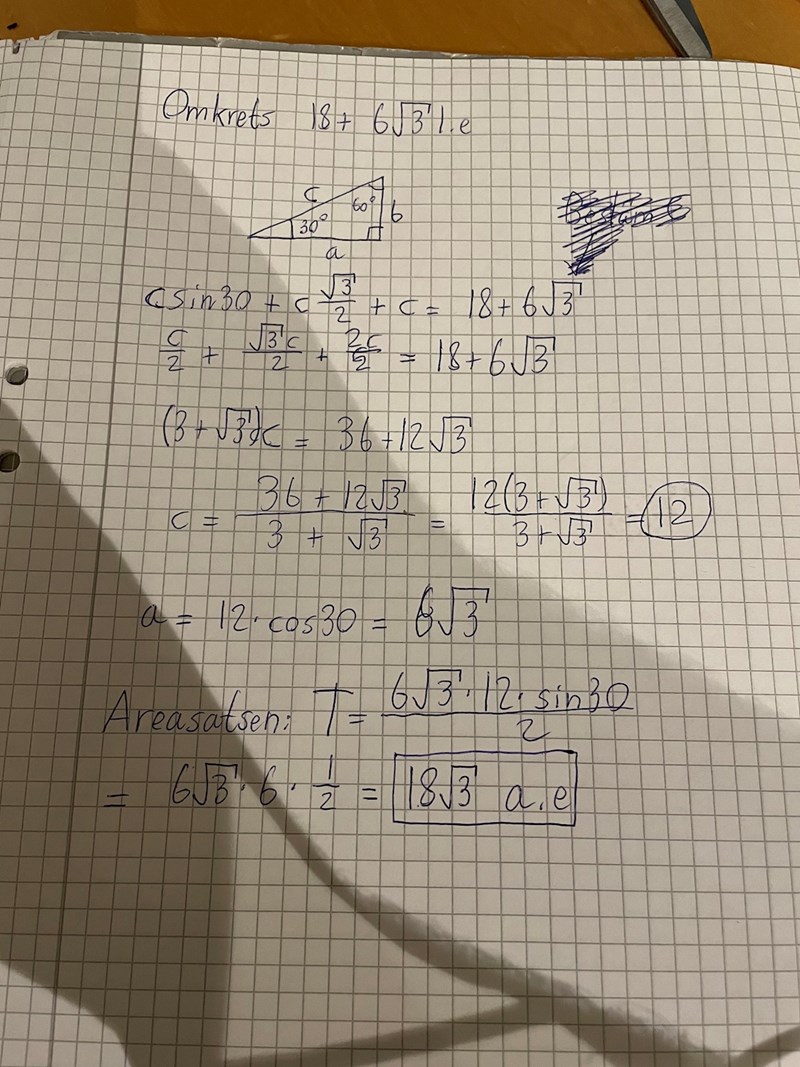 Omkrets 18+ 6√3 l.e
c
60°
b
30°
a
c sin30 + c √3/2 + c = 18+6√3
c/2 + √3c/2 + 2c/2 = 18+6√3
(3+√3)c = 36+12√3
c = (36 + 12√3)/(3 + √3) = 12(3+√3)/(3+√3) = 12
a = 12·cos30 = 6√3
Areasatsen: T = (6√3·12·sin30)/2
= 6√3·6·1/2 = 18√3 a.e